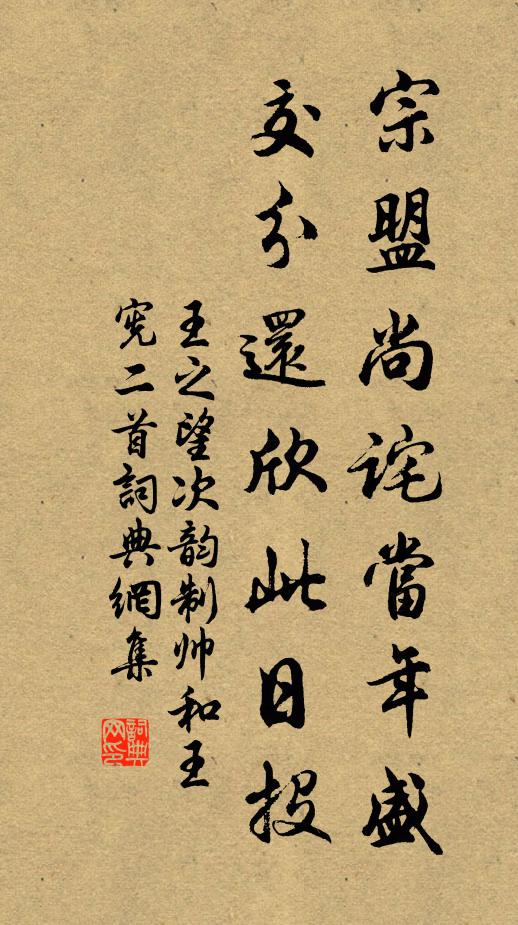 宗盟尚詫當年盛
交分還欣此日投
王之望次韵制帅和王
宪二首詞典網集
詞典
网印